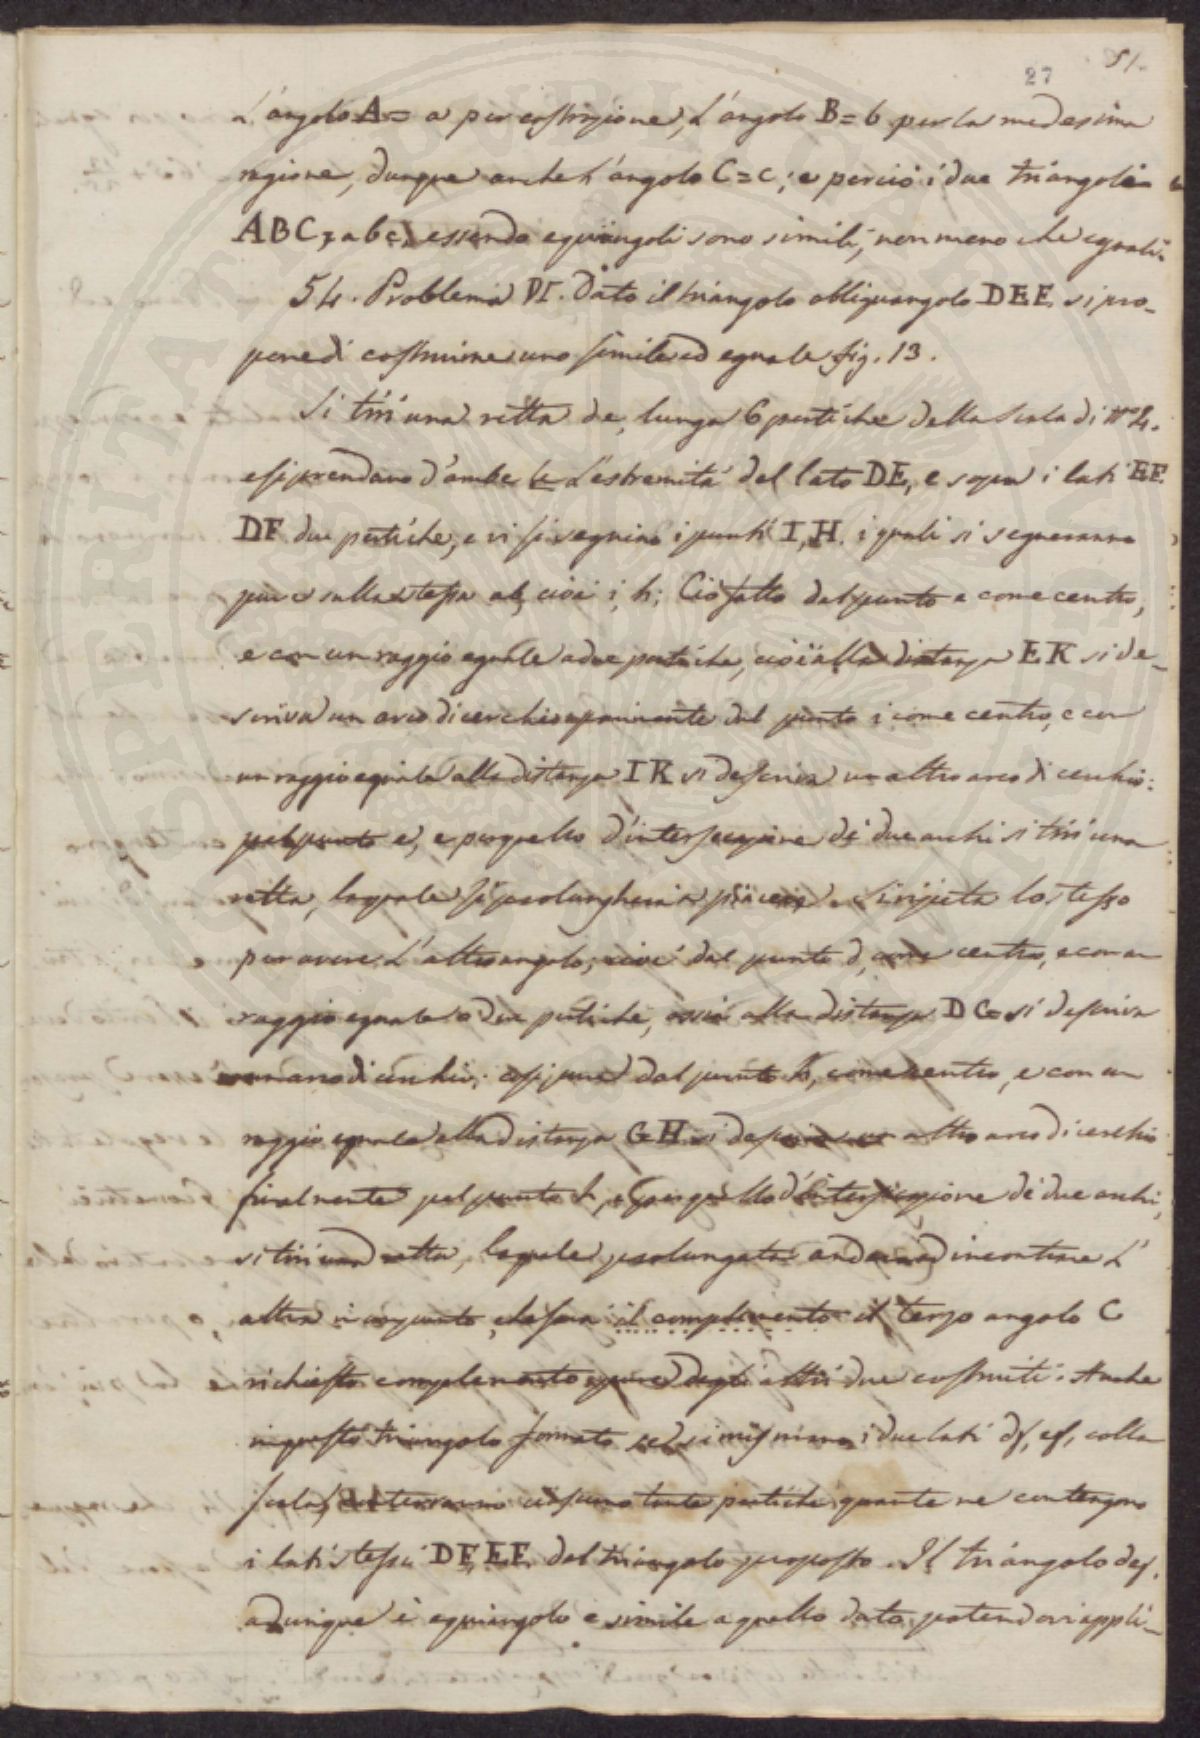 27 51.
L'angolo A = a per costruzione, L'angolo B = b per la medesima
ragione, dunque anche l'angolo C = c; e perciò i due triangoli
ABC, abc, essendo equiangoli sono simili, non meno che eguali.
54. Problema VI. Dato il triangolo obliquangolo DEF si pro-
pone di costruirne uno simile ed eguale fig. 13.
Si tiri una retta de, lunga 6 pertiche della Scala di n.o 4.
e si prendano d'ambe le L'estremità del lato DE, e sopra i lati EF
DF due pertiche, e vi si segnino i punti I, H. i quali si segneranno
pure sulla stessa ab, cioè i, h; Ciò fatto dal punto e come centro,
e con un raggio eguale a due pertiche, cioè alla distanza EK si de-
scriva un arco di cerchio; dal punto i come centro, e con
un raggio eguale alla distanza IK si descriva un altro arco di cerchio:
pel punto e, e per quello d'intersezione di due archi si tiri una
retta, la quale si prolungherà a piacere. Si ripeta lo stesso
per avere L'altro angolo; cioè dal punto d, come centro, e con un
raggio eguale a due pertiche, ossia alla distanza DG si descriva
un arco di cerchio; così pure dal punto h, come centro, e con un
raggio eguale alla distanza GH si descriva un altro arco di cerchio
finalmente pel punto h, e per quello d'intersezione di due archi,
si tiri una retta, la quale prolungata anderà ad incontrare L'
altra in un punto, che sarà il complemento il terzo angolo C
richiesto complemento pure degli altri due costruiti. Anche
in questo triangolo formato se si misurano i due lati df, ef, colla
scala, conterranno ciascuno tante pertiche quante ne contengono
i lati stessi DF, EF. del triangolo proposto. Il triangolo def.
adunque è equiangolo e simile a quello dato, potendovi appli-